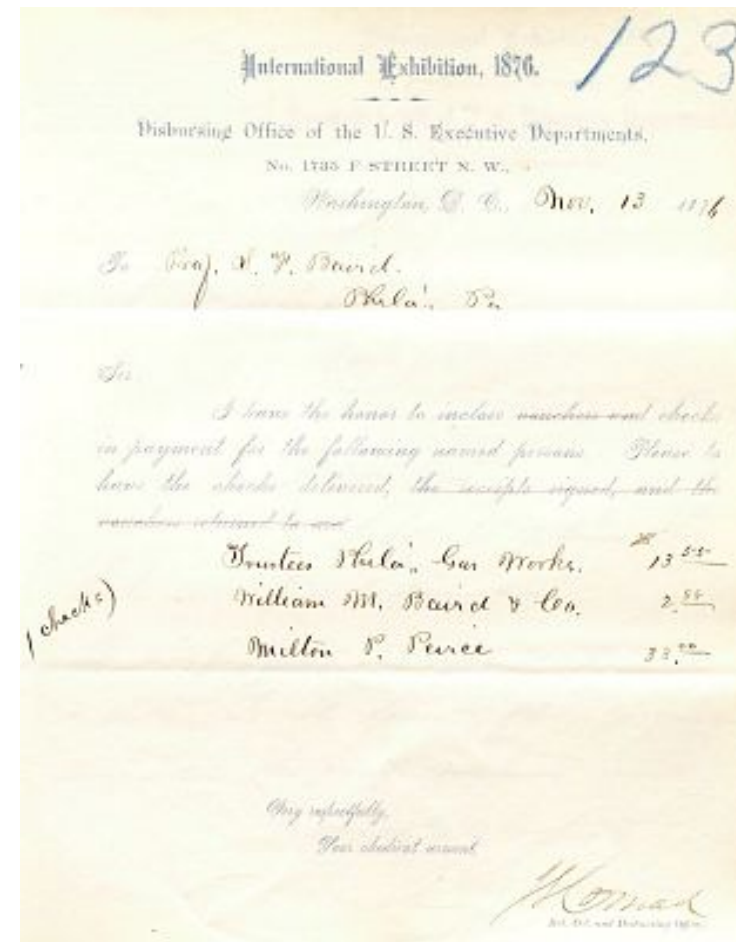 123
International Exhibition, 1876.
Disbursing Office of the U. S. Executive Departments,
No. 1735 F STREET N. W.,
Washington, D. C., Nov. 13 1876
To Prof. S. F. Baird.
Phila. Pa
Sir
I have the honor to inclose vouchers and checks
in payment for the following named persons Please to
have the checks delivered, the receipts signed, and the
vouchers returned to me
Trustees Phila. Gas Works. 13 55
William M. Baird & Co. 2.
checks)
Milton P. Peirce 33.00
Very respectfully,
Your obedient servant
and Disbursing Officer.